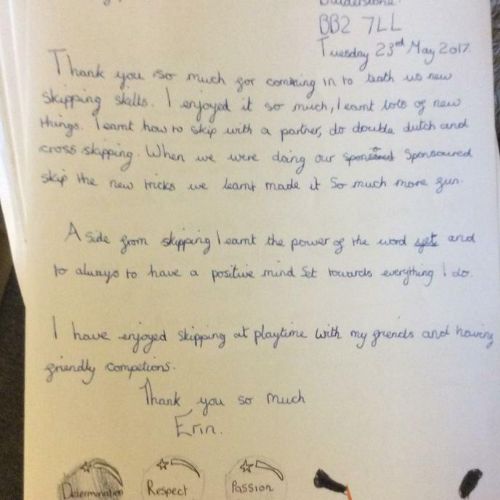 BB2 7LL
Tuesday 23rd May 2017
Thank you so much for coming in to teath us new
skipping skills. I enjoyed it so much, I learnt lots of new
things. I learnt how to skip with a partner, do double dutch and
cross skipping. When we were doing our Sponsoured
skip the new tricks we learnt made it so much more fun.
Aside from skipping I learnt the power of the word yet and
to always to have a positive mind set towards everything I do.
I have enjoyed skipping at playtime with my friends and having
friendly competions.
Thank you so much
Erin.
Determination Respect Passion